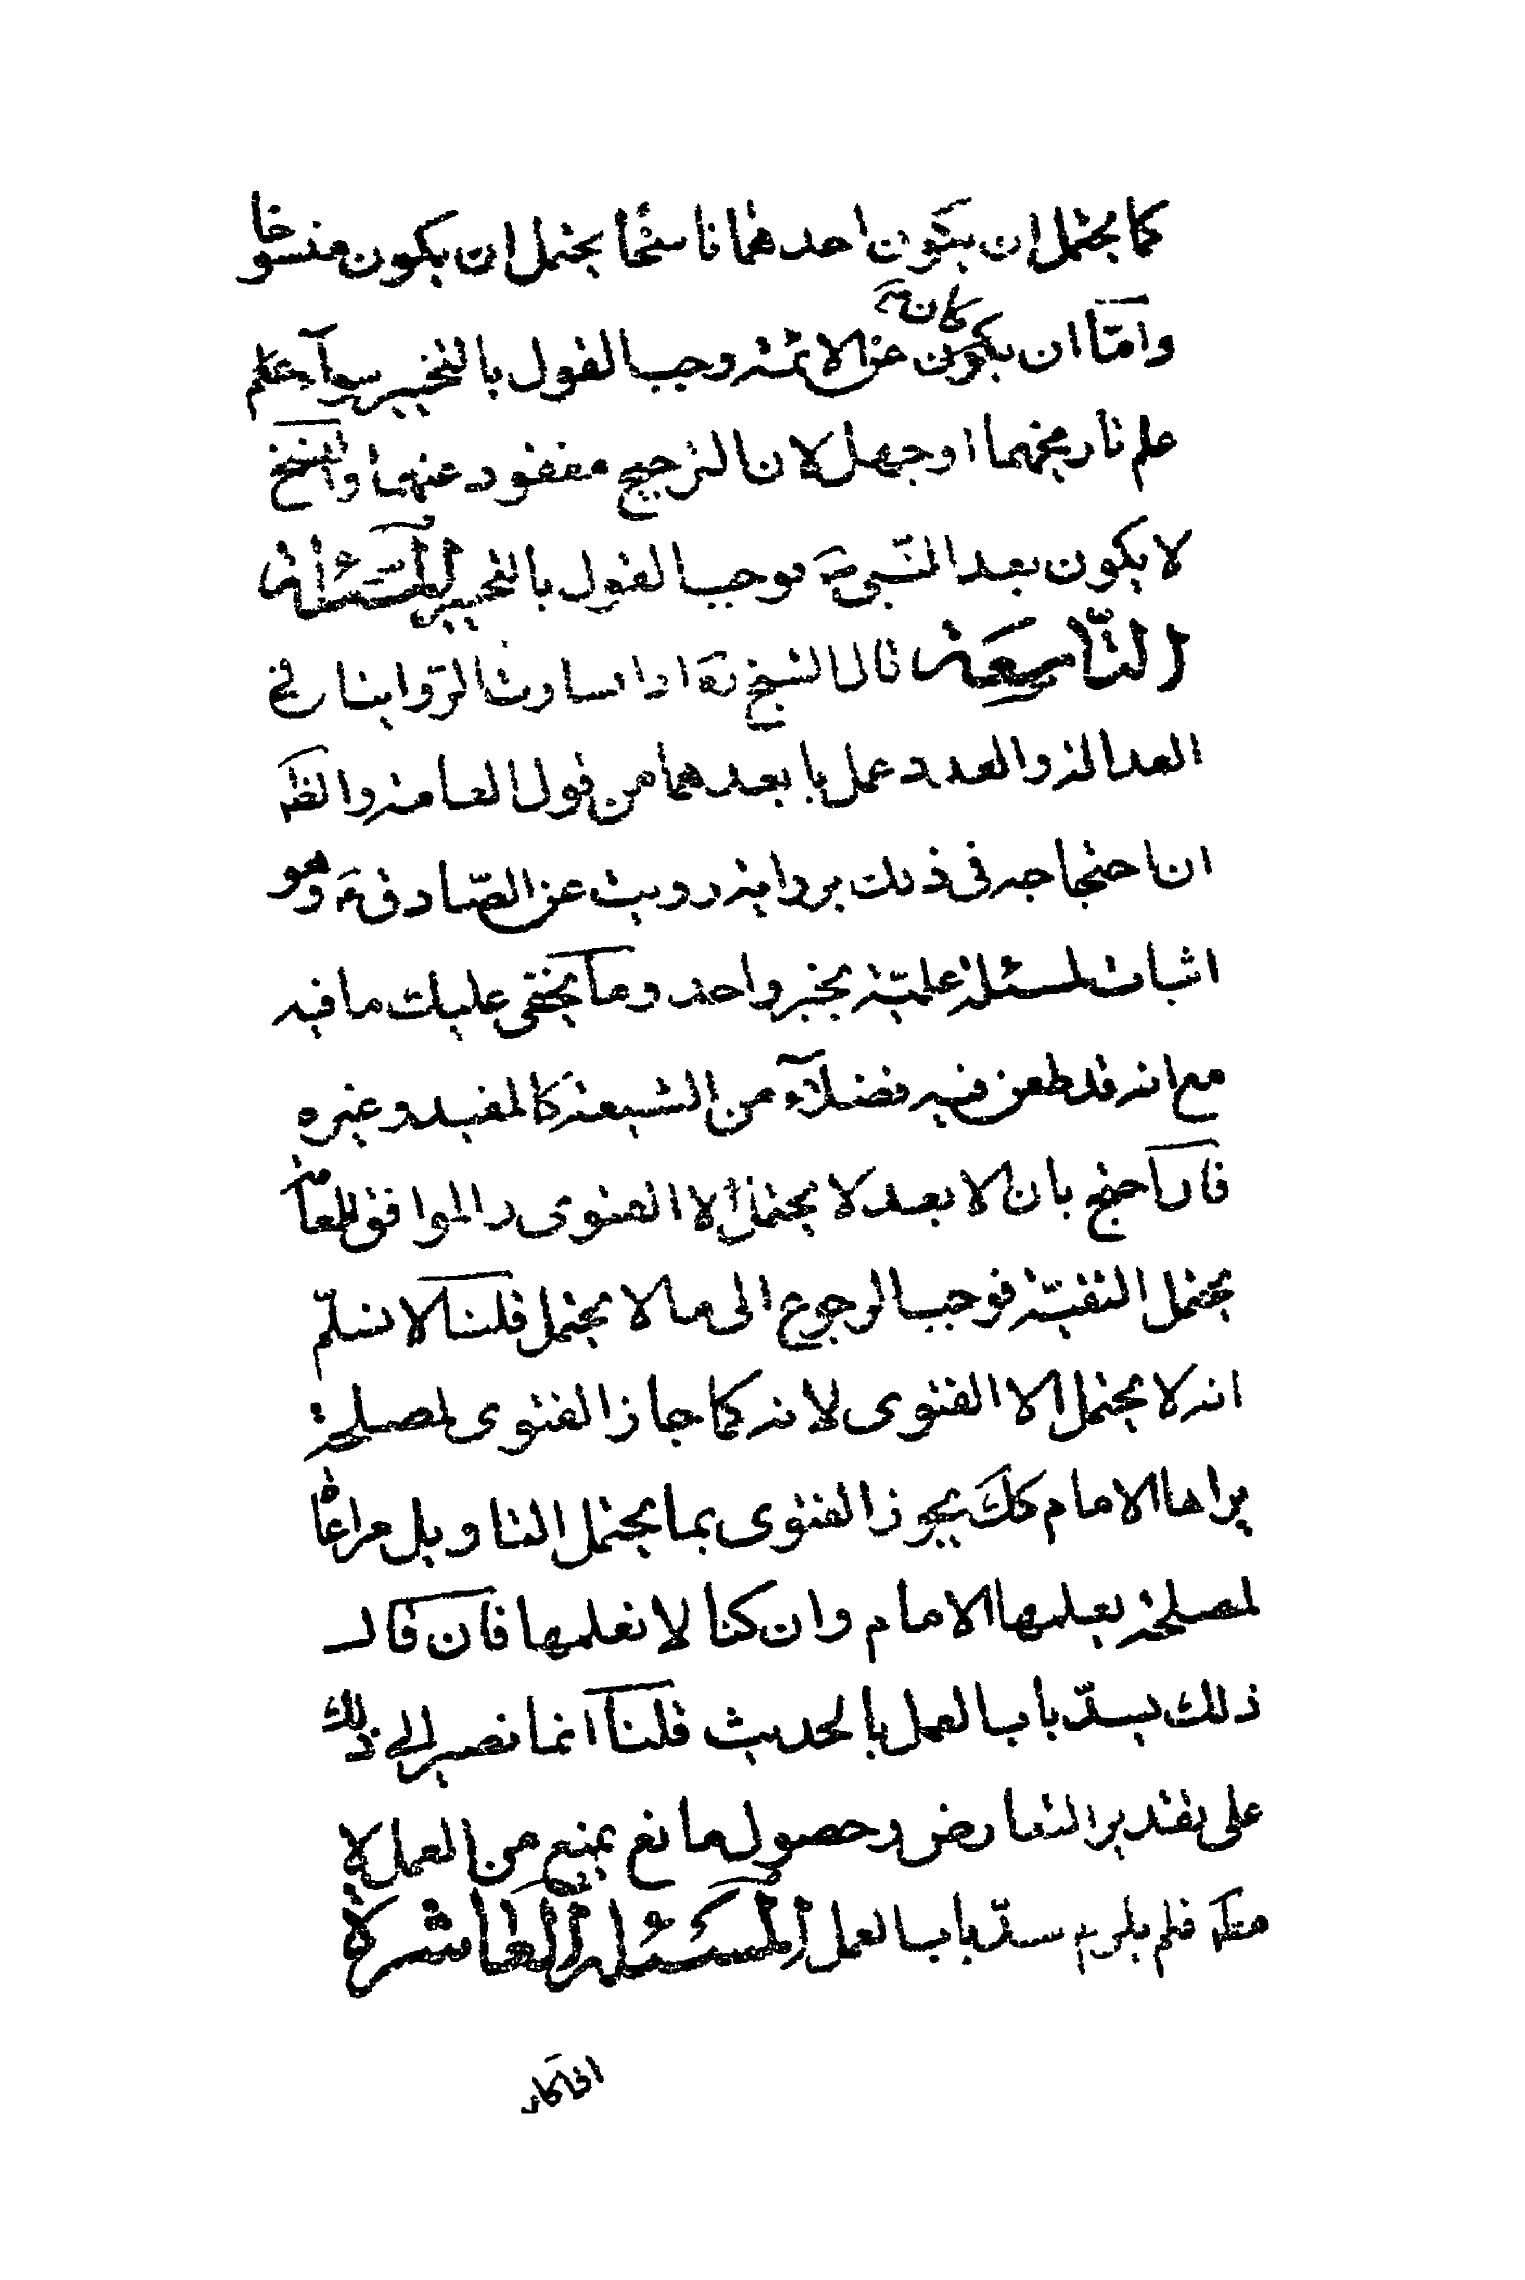 كما يحتمل ان يكون احدهما ناسخا يحتمل ان يكون منسوخا
وامّا ان يكون كانت عن الائمة وجب القول بالتخيير سوآء علم
علم تاريخهما او جهل لان الترجيح مفقود عنهما والنسخ
لا يكون بعد النّبى ص فوجب القول بالتخيير المسئلة
التّاسعة قال الشيخ ره اذا تساوت الرّوايتان فى
العدالة والعدد عمل بابعدهما من قول العامة والظ
ان احتجاجه فى ذلك برواية رويت عن الصّادق ع وهو
اثبات لمسئلة علميّة بخبر واحد وما يخفى عليك ما فيه
مع انه قد طعن فيه فضلآء من الشيعة كالمفيد وغيره
فان احتج بان الابعد لا يحتمل الا الفتوى والموافق للعامّة
يحتمل التقيّة فوجب الرجوع الى ما لا يحتمل قلنا لا نسلّم
انه لا يحتمل الا الفتوى لانه كما جاز الفتوى لمصلحة
يراها الامام كك يجوز الفتوى بما يحتمل التاويل مراعاة
لمصلحة يعلمها الامام وان كنا لا نعلمها فان قال
ذلك يسدّ باب العمل بالحديث قلنا انما نصير الى ذلك
على تقدير التعارض وحصول مانع يمنع من العمل لا
مطلقا فلم يلزم سدّ باب العمل المسئلة العاشرة